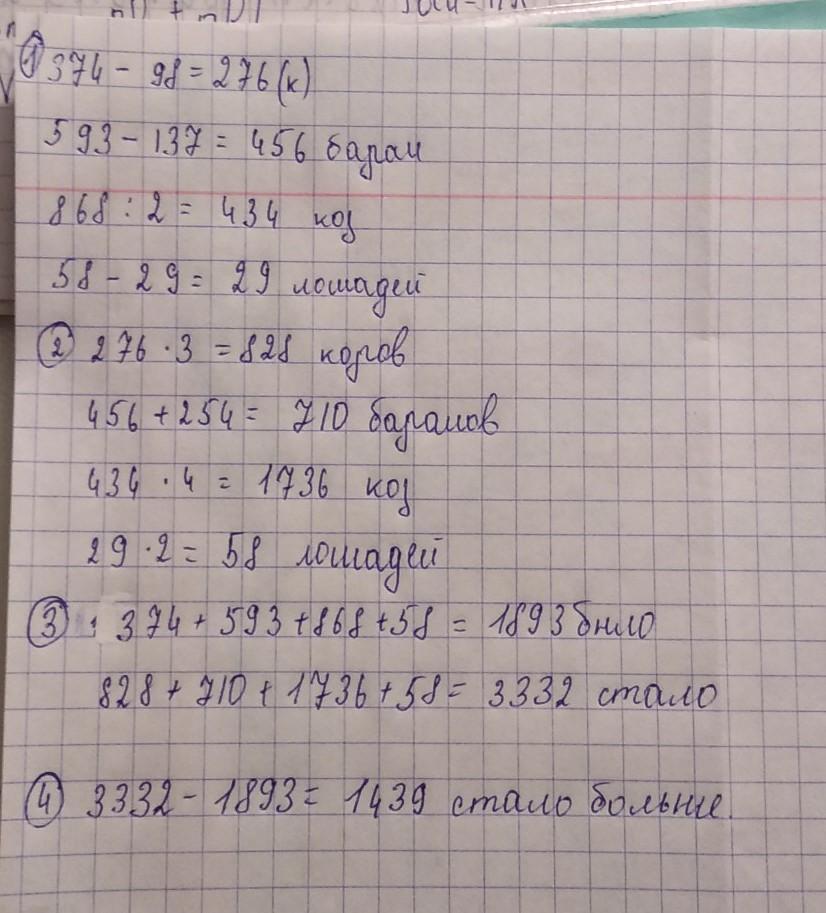 ① 374 - 98 = 276 (к)
593 - 137 = 456 баран
868 : 2 = 434 коз
58 - 29 = 29 лошадей
② 276 · 3 = 828 коров
456 + 254 = 710 баранов
434 · 4 = 1736 коз
29 · 2 = 58 лошадей
③ 374 + 593 + 868 + 58 = 1893 было
828 + 710 + 1736 + 58 = 3332 стало
④ 3332 - 1893 = 1439 стало больше.